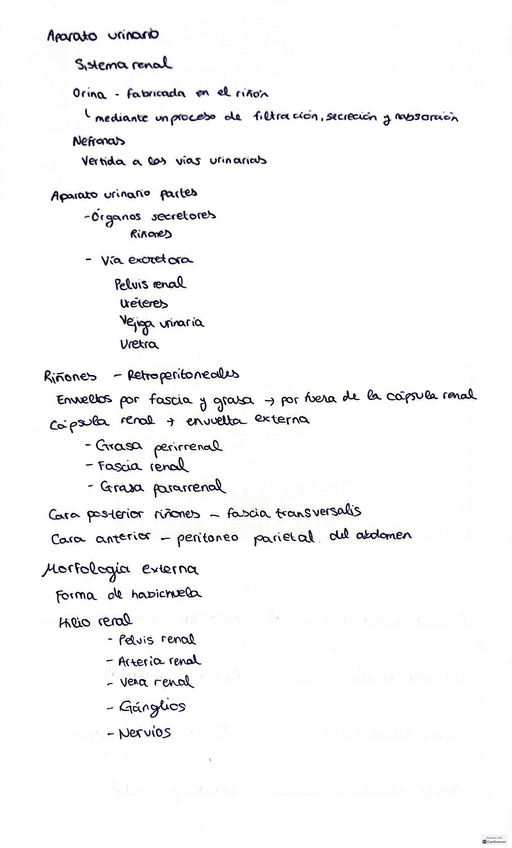 Aparato urinario
Sistema renal
Orina - fabricada en el riñón
mediante un proceso de filtración, secreción y reabsorción
Nefronas
Vertida a las vías urinarias
Aparato urinario partes
- Órganos secretores
Riñones
- Vía excretora
Pelvis renal
Uréteres
Vejiga urinaria
Uretra
Riñones - Retroperitoneales
Envueltos por fascia y grasa → por fuera de la cápsula renal
Cápsula renal → envuelta externa
- Grasa perirrenal
- Fascia renal
- Grasa pararrenal
Cara posterior riñones - fascia transversalis
Cara anterior - peritoneo parietal del abdomen
Morfología externa
Forma de habichuela
Hilio renal
- Pelvis renal
- Arteria renal
- Vena renal
- Gánglios
- Nervios
CamScanner